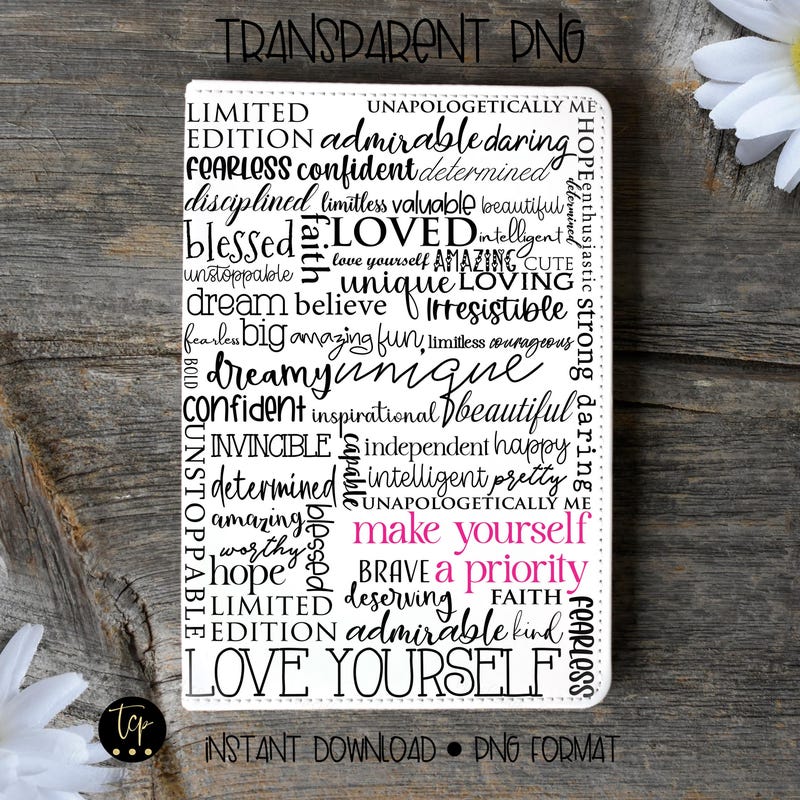 TRANSPARENT PNG
LIMITED
EDITION
UNAPOLOGETICALLY ME
admirable daring
HOPE enthusiastic strong daring
determined
FEARLESS confident determined
disciplined limitless valuable beautiful
blessed
faith
LOVED intelligent
unstoppable
love yourself AMAZING CUTE
unique LOVING
dream believe Irresistible
fearless big amazing fun limitless courageous
BOLD
dreamy unique
confident inspirational beautiful
UNSTOPPABLE
INVINCIBLE
capable
independent happy
determined
intelligent pretty
UNAPOLOGETICALLY ME
amazing
blessed
make yourself
worthy
hope
BRAVE a priority
deserving FAITH
LIMITED
EDITION admirable kind
FEARLESS
LOVE YOURSELF
tcp
INSTANT DOWNLOAD • PNG FORMAT